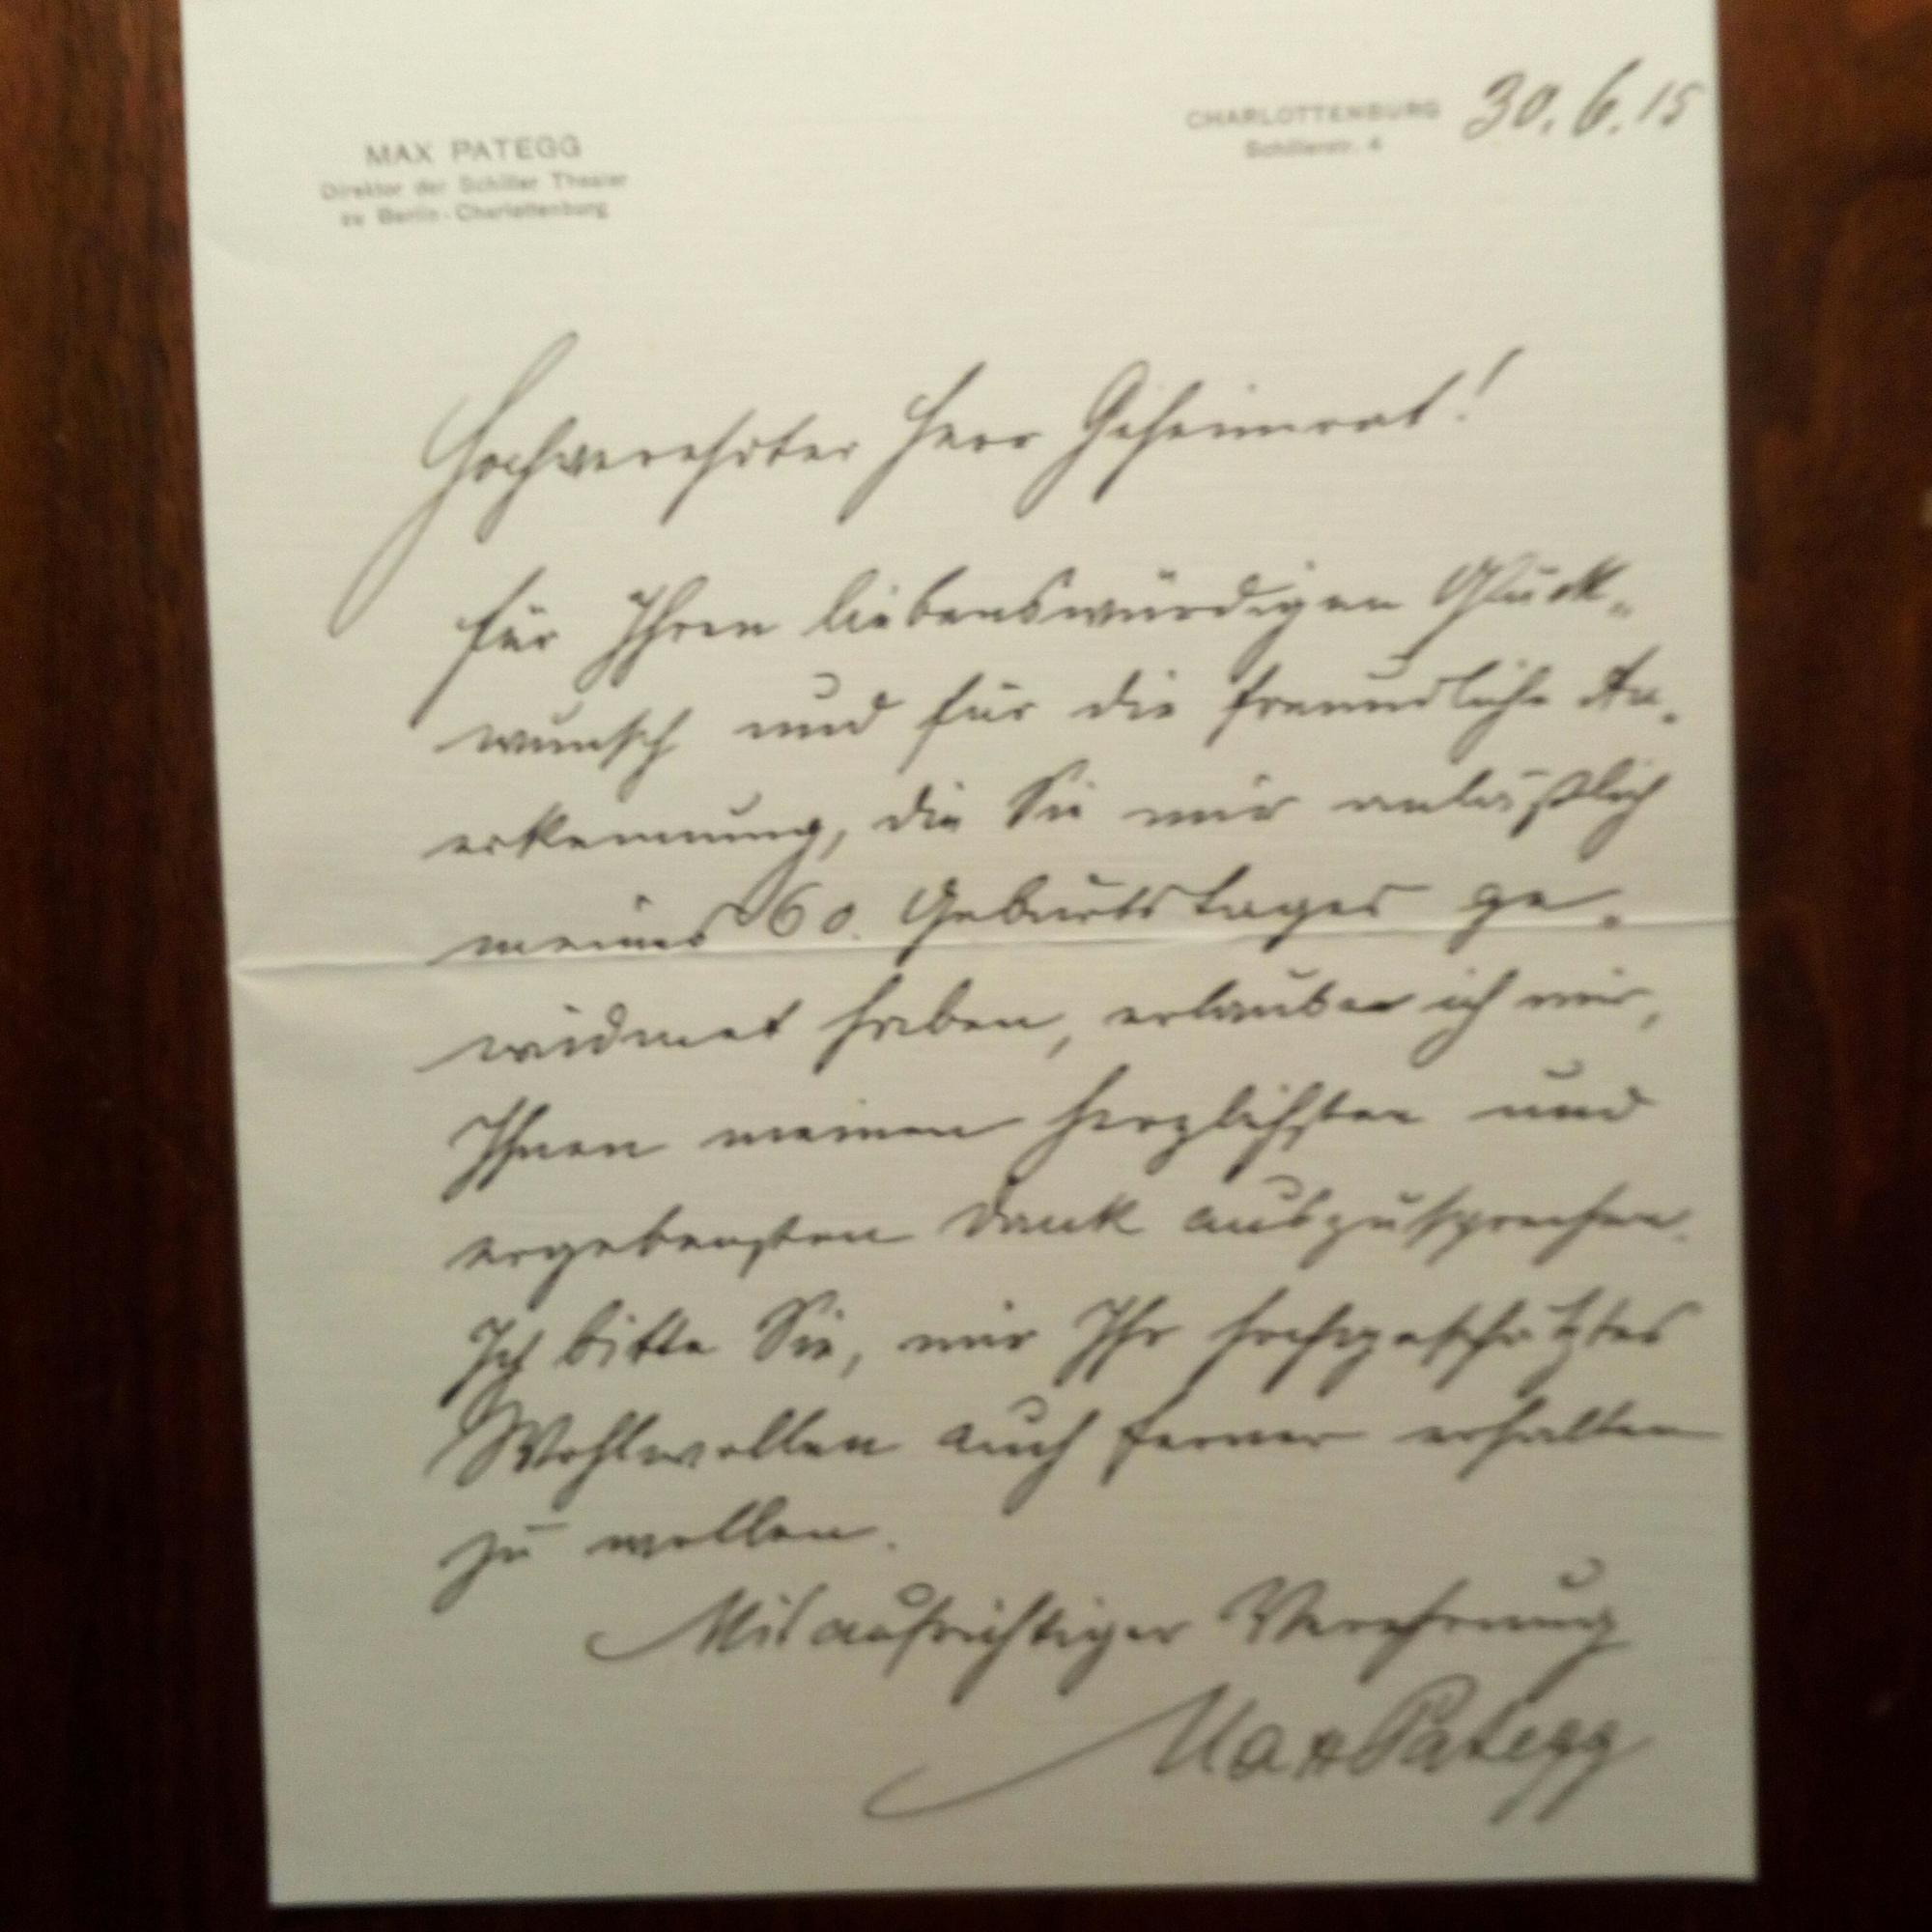 MAX PATEGG
Direktor der Schiller Theater
zu Berlin-Charlottenburg
CHARLOTTENBURG
Schillerstr. 4
30.6.15
Hochverehrter Herr Geheimrat!
für Ihren liebenswürdigen Glück-
wunsch und für die freundliche An-
erkennung, die Sie mir anläßlich
meines 60. Geburtstages ge-
widmet haben, erlaube ich mir,
Ihnen meinen herzlichsten und
ergebensten Dank auszusprechen.
Ich bitte Sie, mir Ihr hochgeschätztes
Wohlwollen auch ferner erhalten
zu wollen.
Mit aufrichtiger Verehrung
Max Pategg